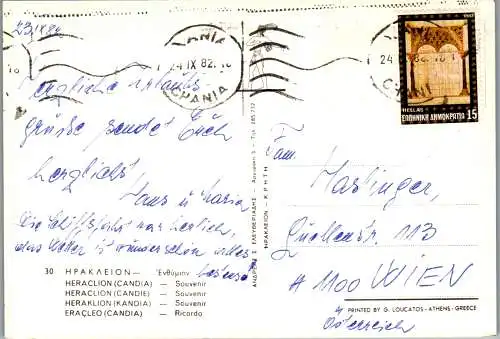 23.IX.82
CHANIA
24.IX 82.18
CHANIA
1982
HELLAS
ΕΛΛΗΝΙΚΗ ΔΗΜΟΚΡΑΤΙΑ 15
Herzliche Urlaubs-
grüße sendet Euch
herzlichst
Hans u Maria
Die Schiffsfahrt war herrlich,
das Wetter ist wunderschön alles
bestens
Fam.
Hartinger,
Quellenstr. 113
A 1100 WIEN
Österreich
30 ΗΡΑΚΛΕΙΟΝ — Ἐνθύμιον
HERACLION (CANDIA) — Souvenir
HERACLION (CANDIE) — Souvenir
HERAKLION (KANDIA) — Souvenir
ERAÇLEO (CANDIA) — Ricordo
ΗΡΑΚΛΕΙΟΝ - ΚΡΗΤΗ
PRINTED BY G. LOUCATOS - ATHENS - GREECE